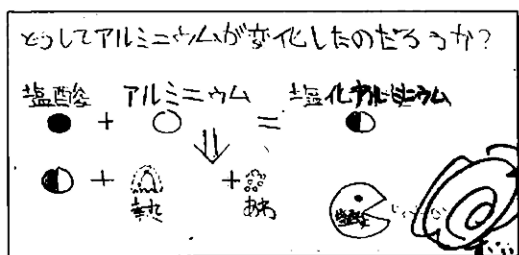 どうしてアルミニウムが変化したのだろうか?
塩酸 アルミニウム 塩化アルミニウム
+ =
+ 熱 + あわ
塩酸